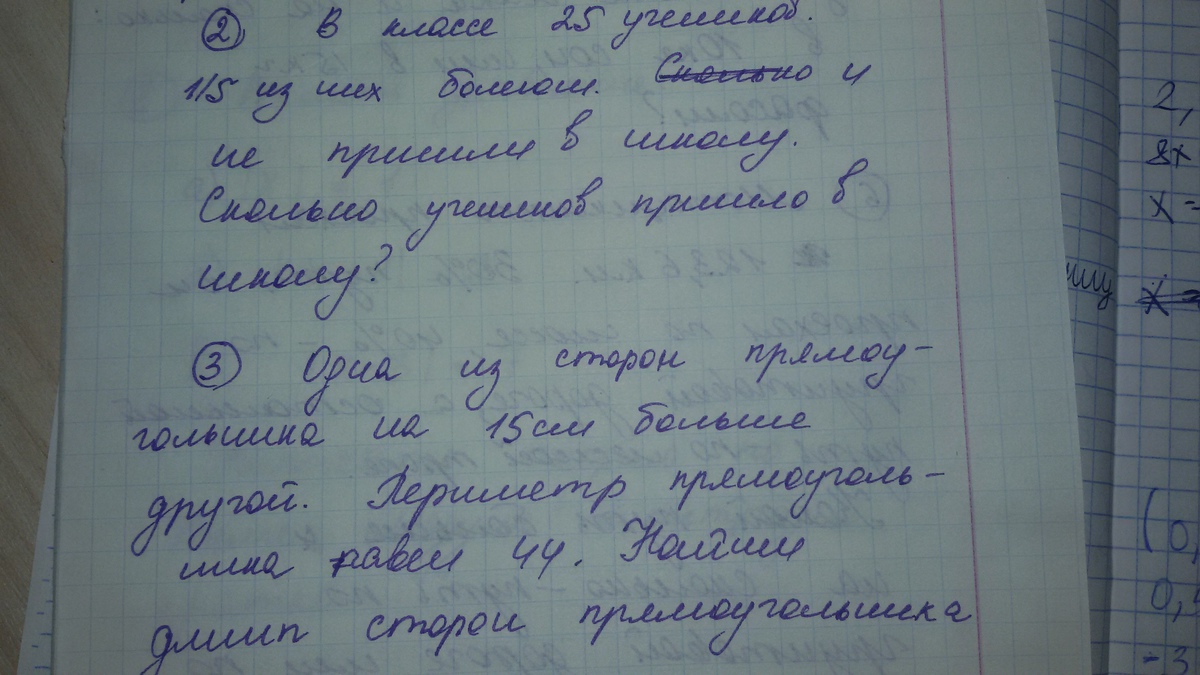 ② В классе 25 учеников.
1/5 из них болеют. Сколько и
не пришли в школу.
Сколько учеников пришло в
школу?
③ Одна из сторон прямоу-
гольника на 15см больше
другой. Периметр прямоуголь-
ника равен 44. Найти
длин сторон прямоугольника
2,
8x
x =
x =
(0,
0,
-3